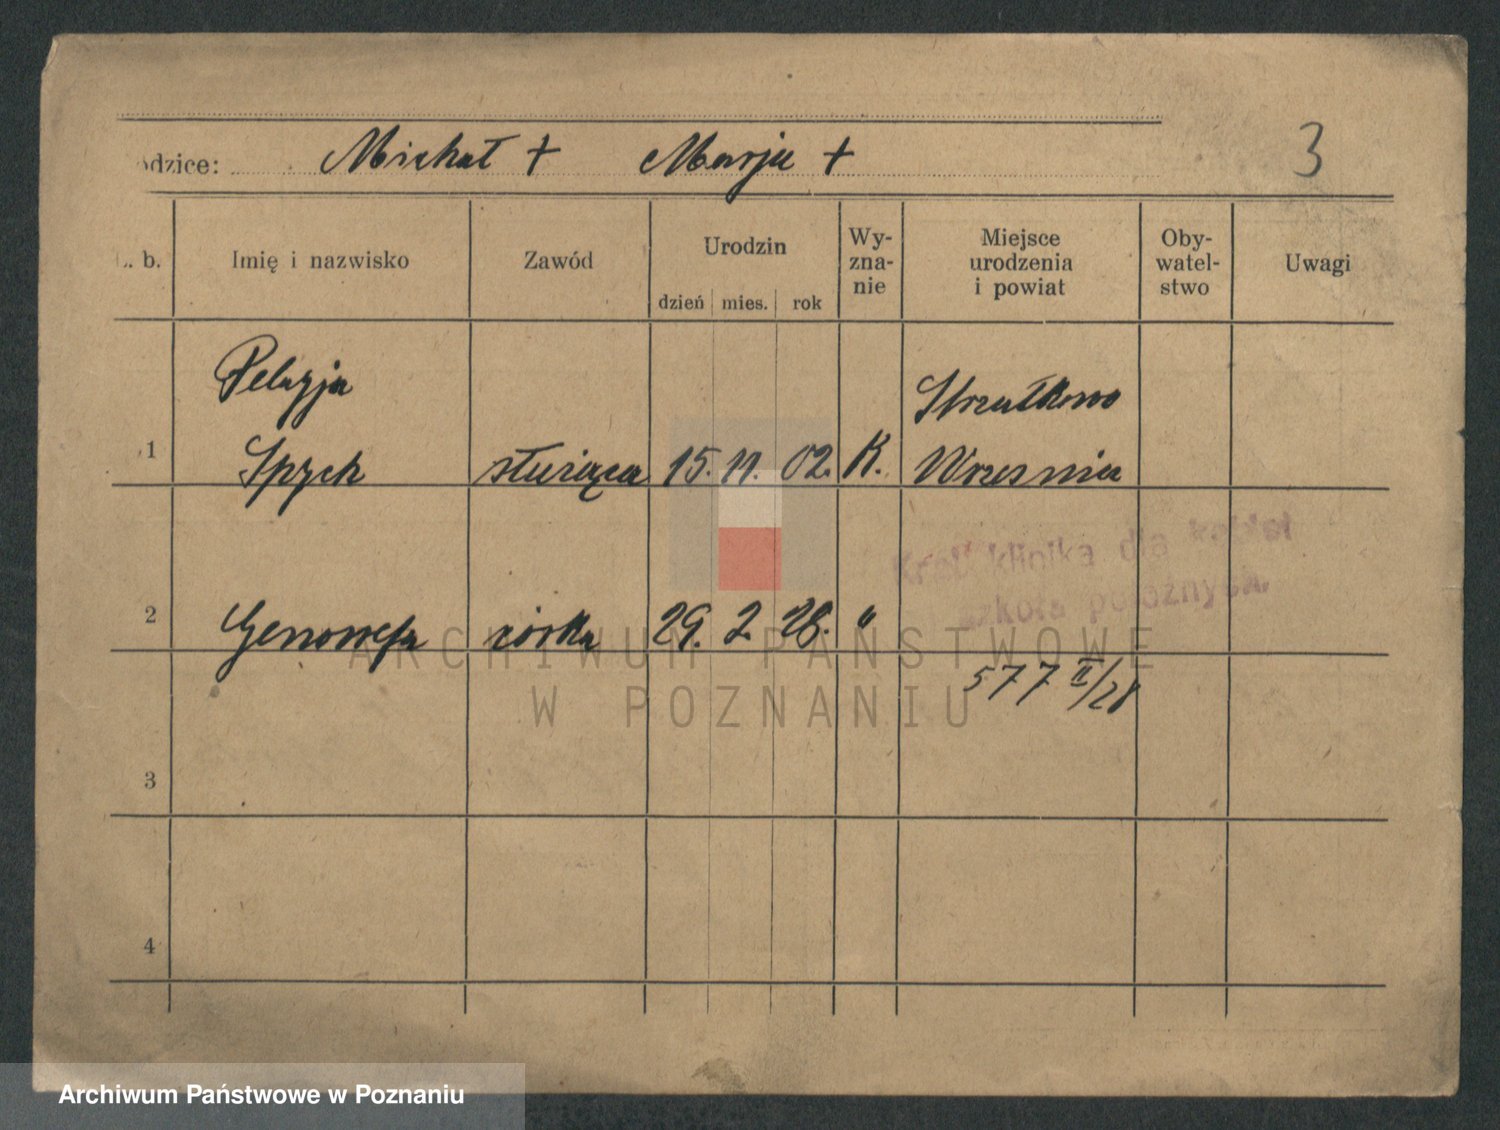 odzice: Michał + Marja + 3
L. b. Imię i nazwisko Zawód Urodzin dzień mies. rok Wy-zna-nie Miejsce urodzenia i powiat Oby-watel-stwo Uwagi
Pelagja Strzałkowo
1 Spych służąca 15. 11. 02. K. Wrzesnia
Kraj. klinika dla kobiet
szkoła położnych.
2 Genowefa córka 29. 2. 28. "
577 II/28
3
4
ARCHIWUM PAŃSTWOWE
W POZNANIU
Archiwum Państwowe w Poznaniu